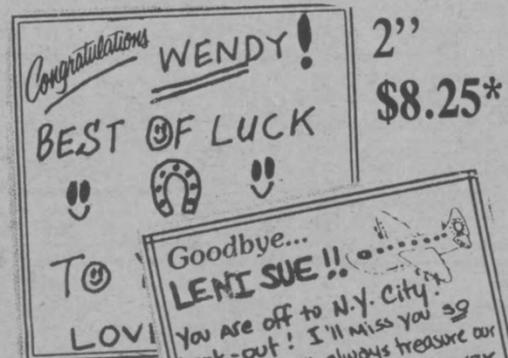 Congratulations
WENDY!
BEST OF LUCK
TO
LOV
2”
$8.25*
Goodbye...
LENI SUE!!
You are off to N.Y. City!
-out! I'll miss you so
always treasure our